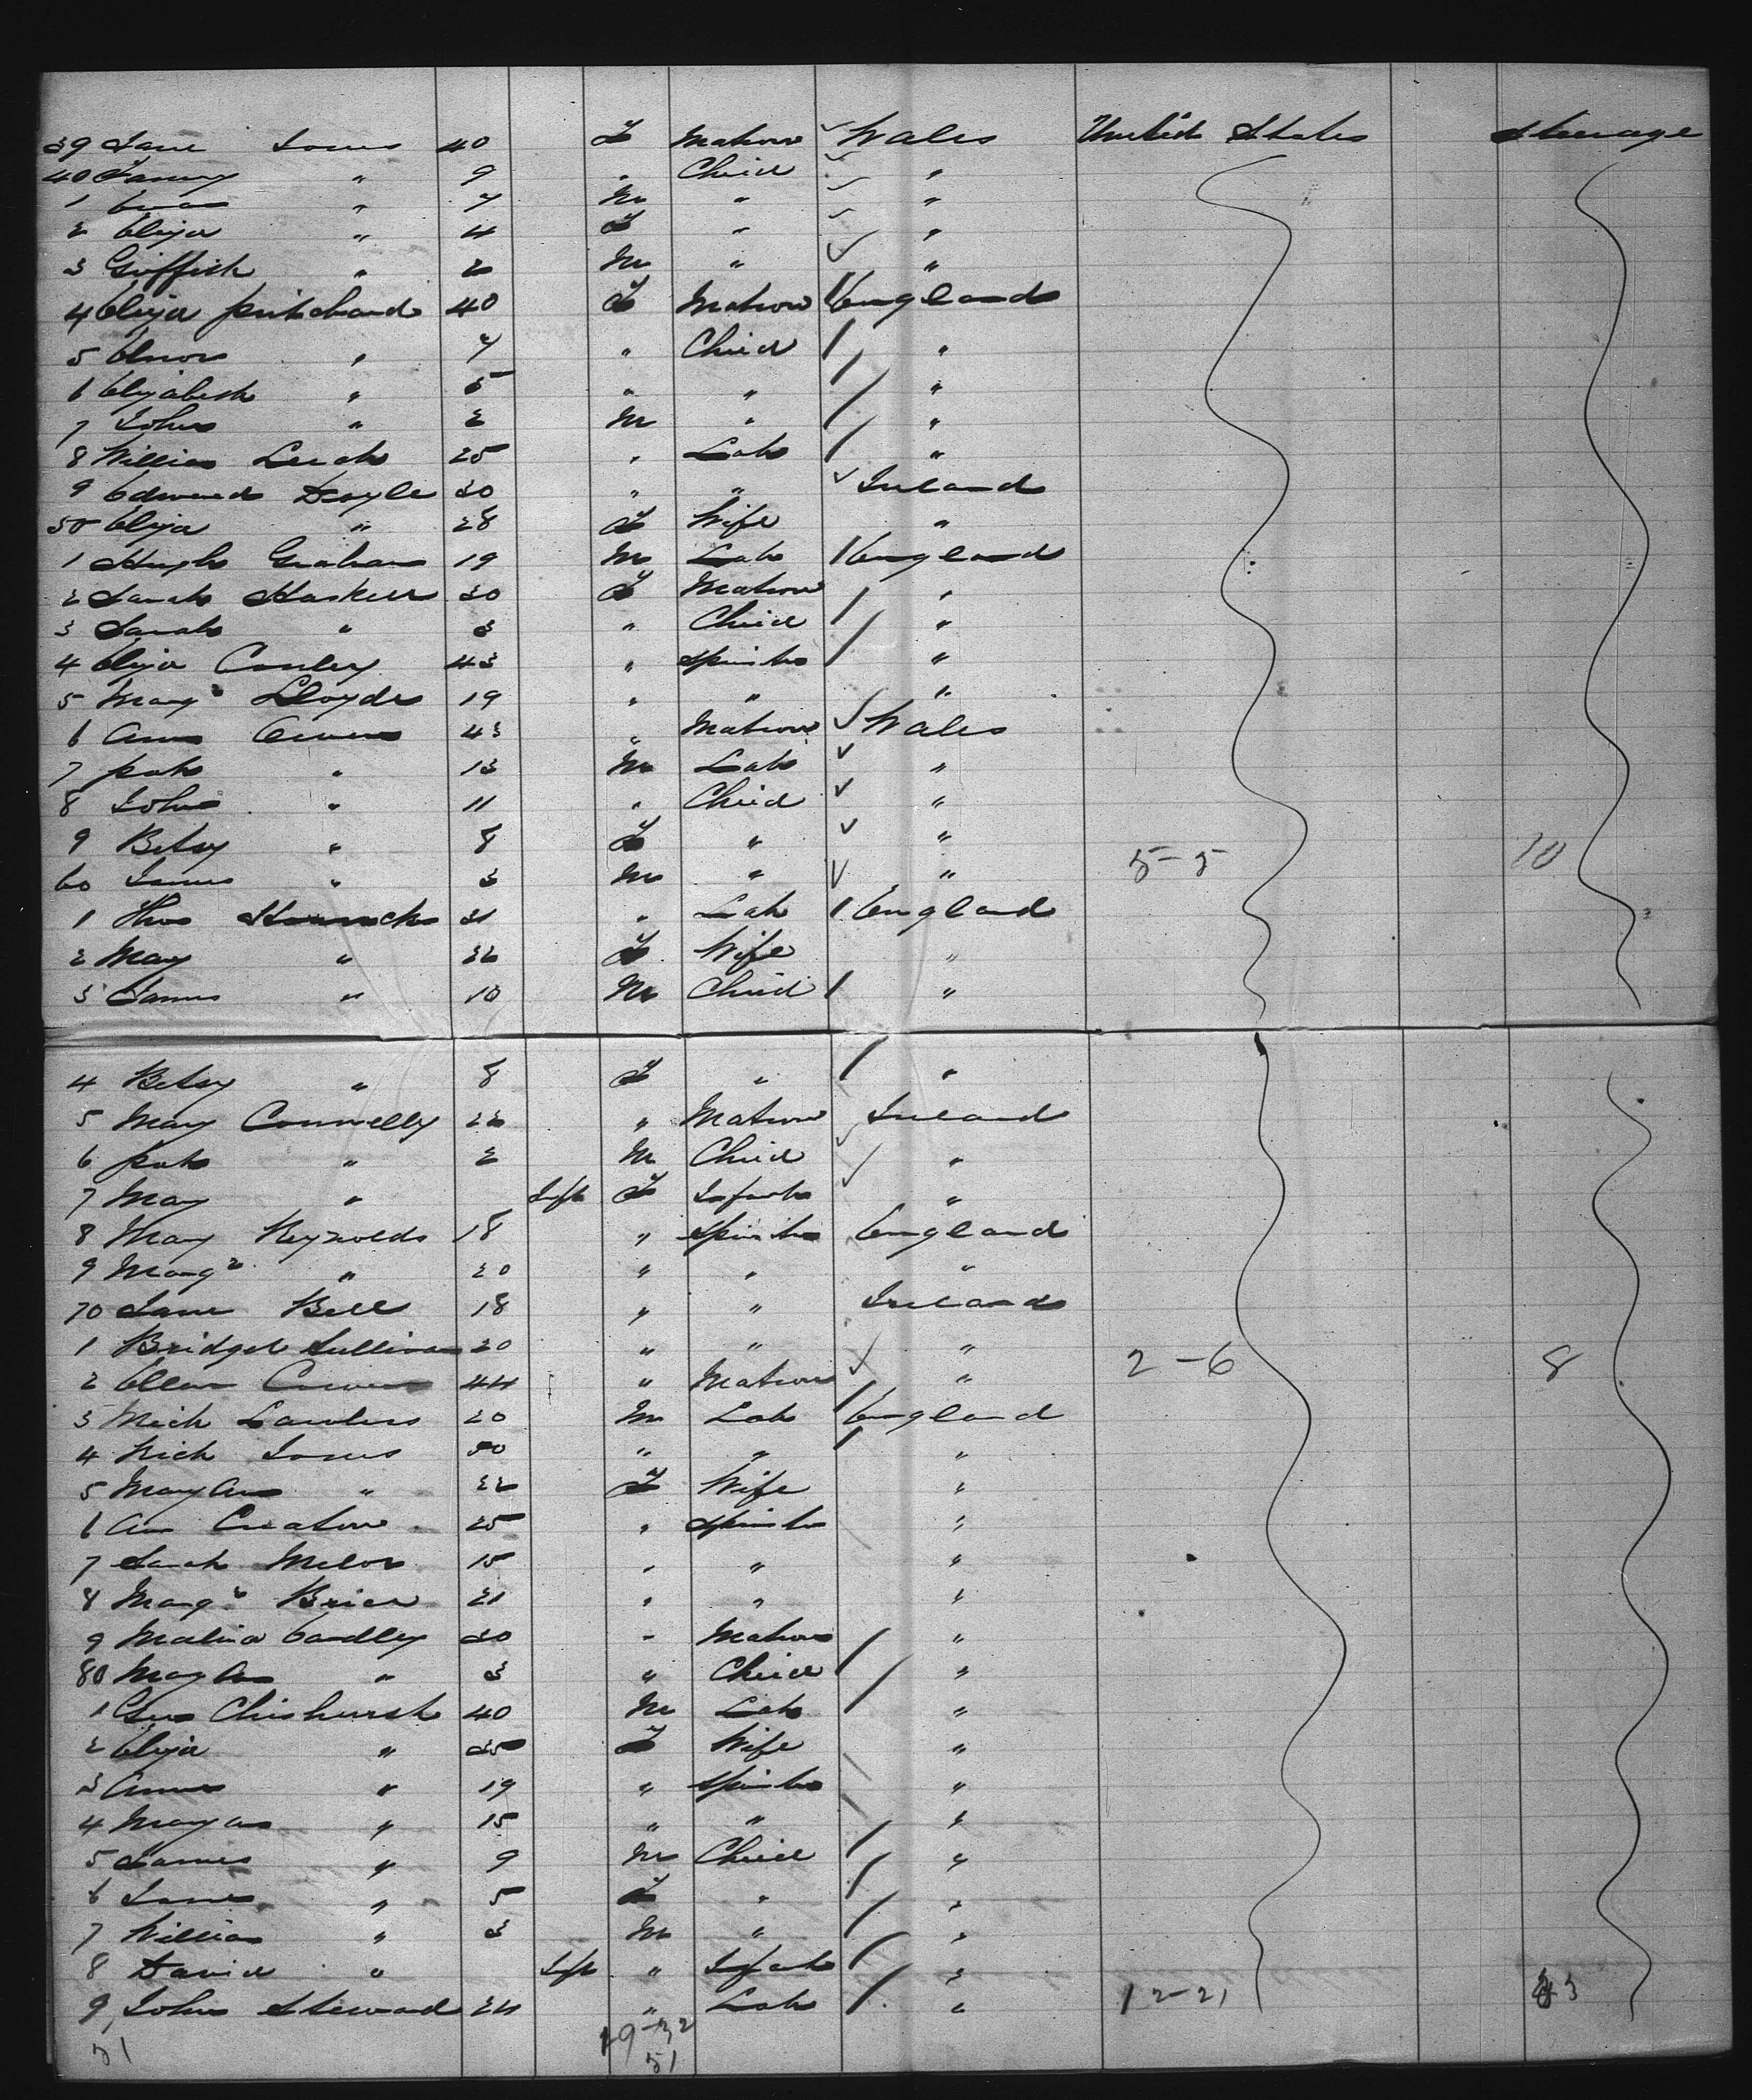 39 Jane Jones 40 F Matron ✓ Wales United States Steerage
40 Fanny " 9 " Child ✓ "
1 Evan " 7 M " ✓ "
2 Eliza " 4 F " ✓ "
3 Griffith " 2 M " ✓ "
4 Eliza Pritchard 40 F Matron / England
5 Elnor " 7 " Child / "
6 Elizabeth " 5 " " / "
7 John " 2 M " / "
8 William Leich 25 " Lab / "
9 Edward Doyle 30 " " ✓ Ireland
50 Eliza " 28 F Wife "
1 Hugh Graham 19 M Lab / England
2 Sarah Haskell 30 F Matron "
3 Sarah " 3 " Child / "
4 Eliza Conley 43 " Spinster / "
5 Margt Lloyd 19 " " "
6 Ann Owens 43 " Matron ✓ Wales
7 Pat " 13 M Lab ✓ "
8 John " 11 " Child ✓ "
9 Betsy " 8 F " ✓ "
60 James " 3 M " ✓ " 5-5 10
1 Thos 31 " Lab / England
2 Mary " 26 F Wife "
3 James " 10 M Child / "
4 Betsy " 8 F " / "
5 Mary Connelly 26 " Matron Ireland
6 Pat " 2 M Child ✓ "
7 Mary " Inft F Infant ✓ "
8 Mary Reynolds 18 " Spinster England
9 Margt " 20 " " "
70 Jane Bell 18 " " Ireland
1 Bridget Sullivan 20 " " "
2 Ellen 44 " Matron ✓ " 2-6 8
3 Mich Lawless 20 M Lab / England
4 Rich Jones 50 " " / "
5 Mary Ann " 22 F Wife "
6 Ann Creaton 25 " Spinster "
7 Sarah Melor 15 " " "
8 Margt Brien 21 " " "
9 Malina Eardley 30 " Matron / "
80 Mary Ann " 3 " Child / "
1 Geo Chishurst 40 M Lab / "
2 Eliza " 35 F Wife "
3 Anne " 19 " Spinster "
4 Mary Ann " 15 " " "
5 James " 9 M Child / "
6 Jane " 5 F " / "
7 William " 3 M " / "
8 David " Inft " Infant / "
9 John Steward 24 " Lab / " 12-21 33
51 19-32
51